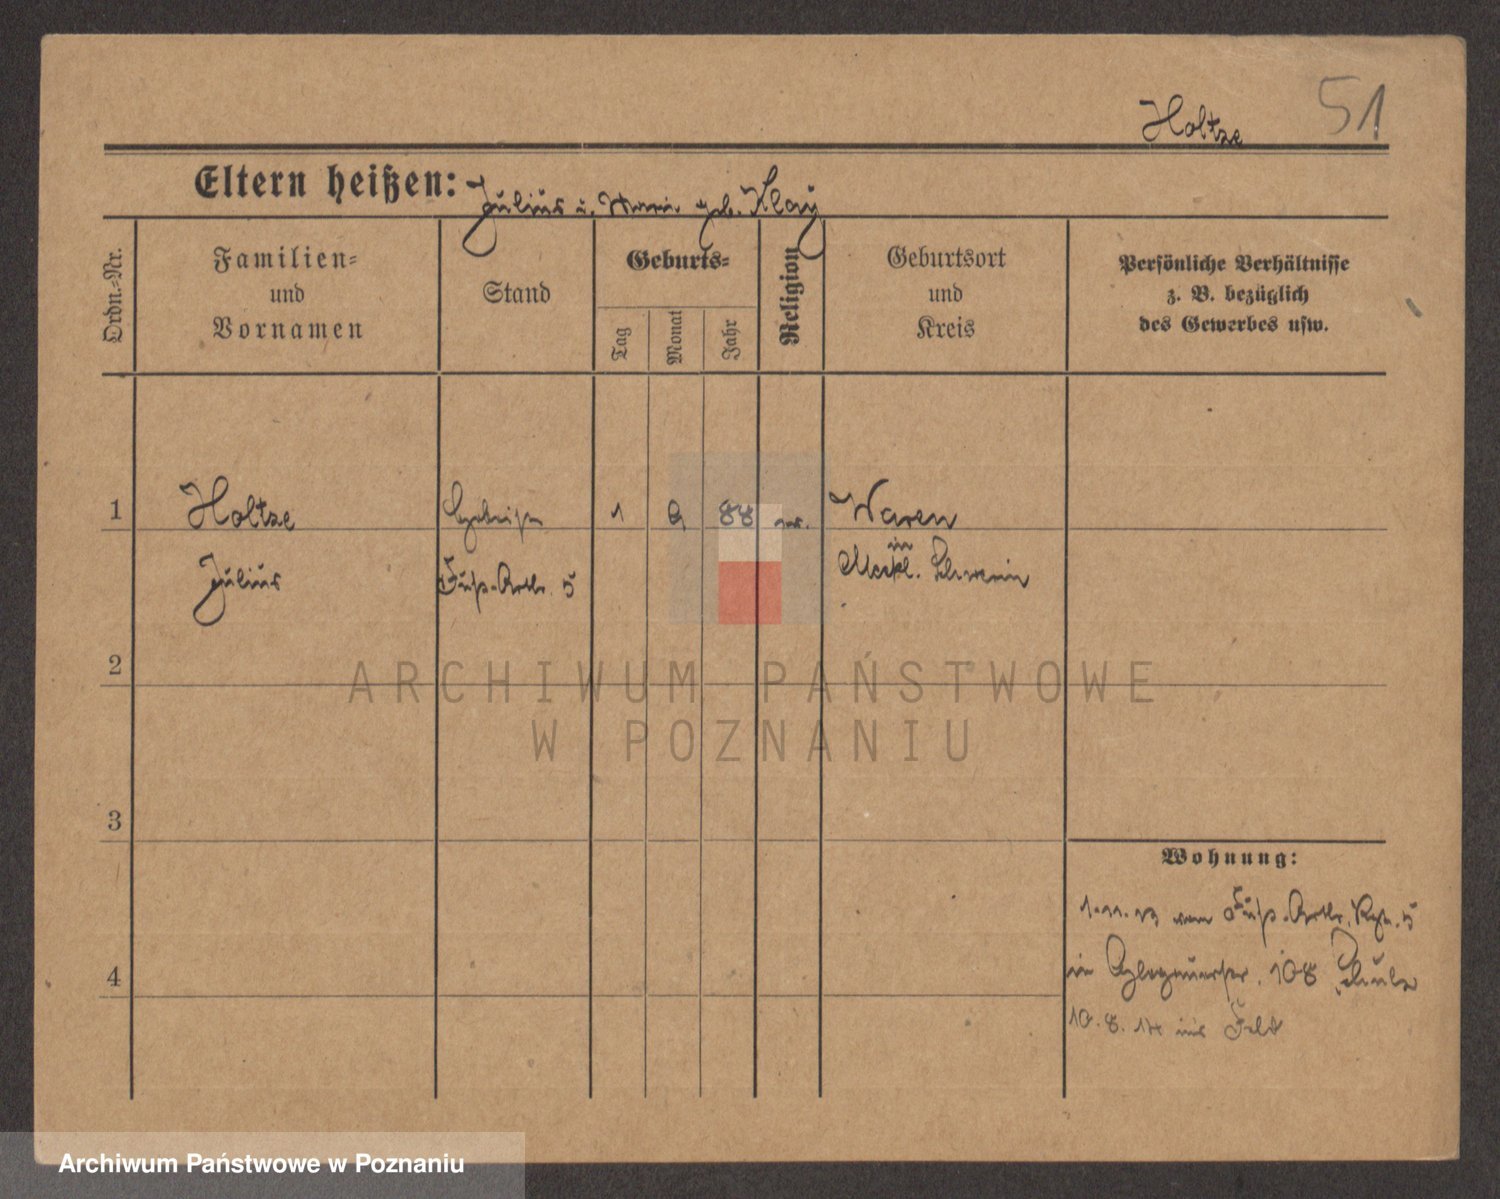 Holtze 51
Eltern heißen: Julius u. Marie geb. Klay
Ordn.-Nr.
Familien-
und
Vornamen
Stand
Geburts-
Tag
Monat
Jahr
Religion
Geburtsort
und
Kreis
Persönliche Verhältnisse
z. B. bezüglich
des Gewerbes usw.
1 Holtze 1 88 Waren
in
Julius Fuß-Artlr. 5 Meckl. Schwerin
2
ARCHIWUM PAŃSTWOWE
W POZNANIU
3
Wohnung:
1.11.13 vom Fuß-Artlr. Rgt. 5
in 108
4
10.8.14 ins Feld
Archiwum Państwowe w Poznaniu